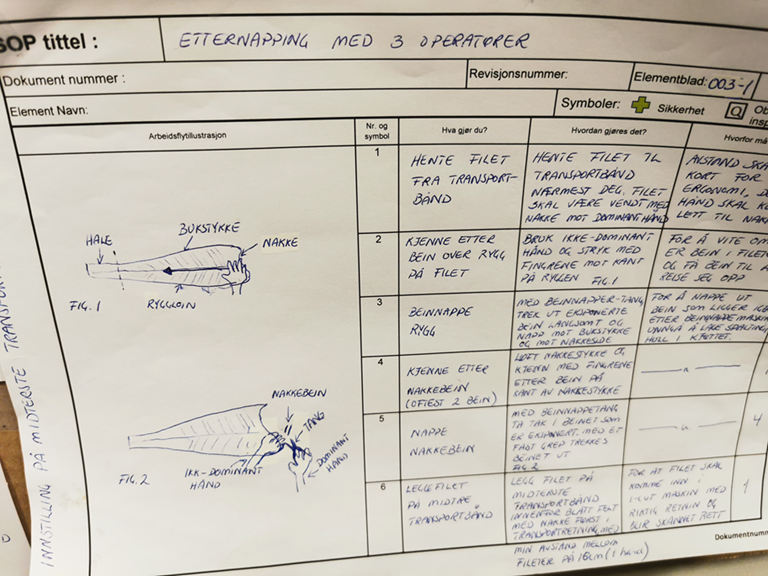 SOP tittel :
ETTERNAPPING MED 3 OPERATØRER
Dokument nummer :
Revisjonsnummer:
Elementblad: 003-1
Element Navn:
Symboler:
Sikkerhet
Q
Arbeidsflytillustrasjon
Nr. og
symbol
Hva gjør du?
Hvordan gjøres det?
Hvorfor må
HALE
BUKSTYKKE
NAKKE
FIG. 1
RYGGLOIN
NAKKEBEIN
TANG
DOMINANT
HÅND
IKK-DOMINANT
HÅND
FIG. 2
1
HENTE FILET
FRA TRANSPORT-
BÅND
HENTE FILET TIL
TRANSPORTBÅND
NÆRMEST DEG. FILET
SKAL VÆRE VENDT MED
NAKKE MOT DOMINANT HÅND
AVSTAND SKA
KORT FOR
ERGONOMI,
HÅND SKAL
LETT TIL
2
KJENNE ETTER
BEIN OVER RYGG
PÅ FILET
BRUK IKKE-DOMINANT
HÅND OG STRYK MED
FINGRENE MOT KANT
PÅ RYGGEN FIG 1
FOR Å VITE OM
ER BEIN I FILET
OG FÅ BEIN TIL Å
REISE SEG OPP
3
BEINNAPPE
RYGG
MED BEINNAPPER-TANG
TREK UT EKSPONERTE
BEIN LANGSOMT OG
NAPP MOT BUKSTYKKE
OG MOT NAKKESIDE
FOR Å NAPPE UT
BEIN SOM LIGGER IGJ
ETTER BEINNAPPEMASKIN
UNNGÅ Å LAGE SPALTING
HULL I KJØTTET.
4
KJENNE ETTER
NAKKEBEIN
(OFTEST 2 BEIN)
LØFT NAKKESTYKKE OG
KJENN MED FINGRENE
ETTER BEIN PÅ
KANT AV NAKKESTYKKE
— " —
5
NAPPE
NAKKEBEIN
MED BEINNAPPETANG
TA TAK I BEINET SOM
ER EKSPONERT. MED ET
FAST GREP TREKKES
BEINET UT
FIG. 2
— " —
4
6
LEGGE FILET
PÅ MIDTRE
TRANSPORTBÅND
LEGG FILET PÅ
MIDTERSTE
TRANSPORTBÅND
INNENFOR BLÅTT FELT
MED NAKKE FØRST I
TRANSPORTRETNING, MED
MIN AVSTAND MELLOM
FILETER PÅ 16cm
FOR AT FILET SKAL
KOMME INN I
MASKIN MED
RIKTIG RETNIN OG
BLIR SKANNET RETT
1
INNSTILLING PÅ MIDTERSTE TRANSPOR